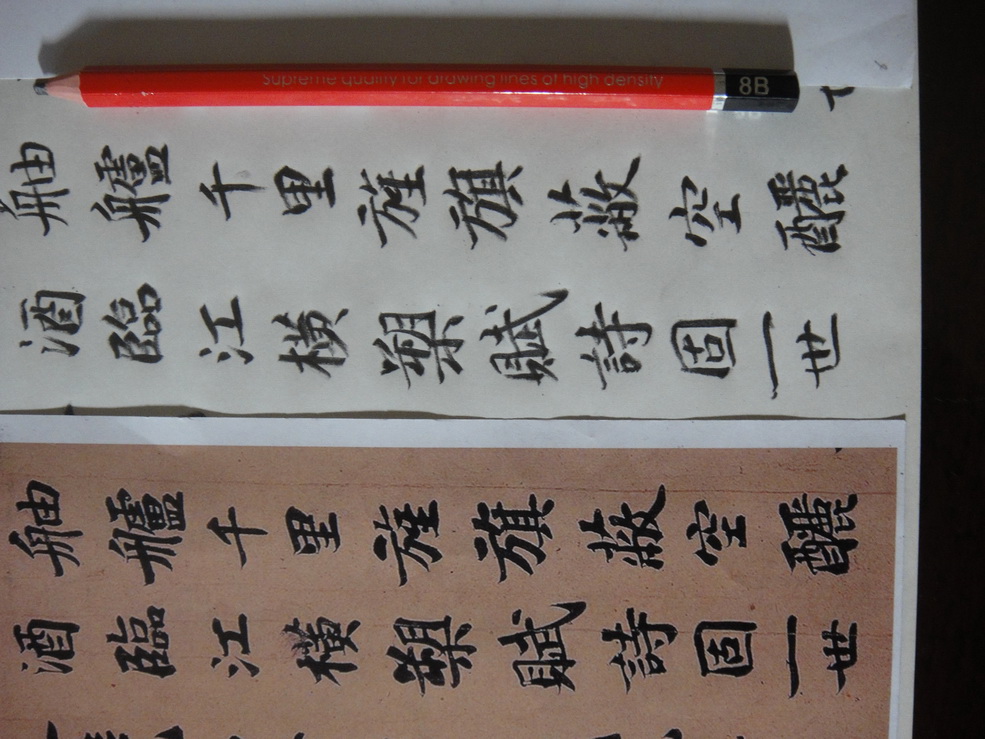 Supreme quality for drawing lines of high density 8B
舳艫千里旌旗蔽空釃
酒臨江橫槊賦詩固一世
舳艫千里旌旗蔽空釃
酒臨江橫槊賦詩固一世